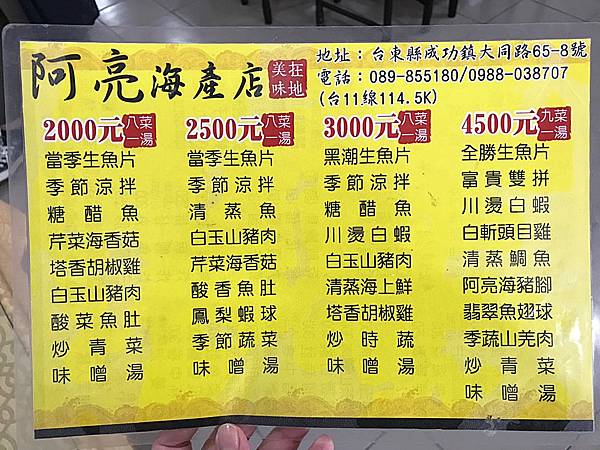 阿亮海產店
美味在地
地址：台東縣成功鎮大同路65-8號
電話：089-855180/0988-038707
(台11線114.5K)
2000元 八菜一湯
當季生魚片
季節涼拌
糖醋魚
芹菜海香菇
塔香胡椒雞
白玉山豬肉
酸菜魚肚
炒青菜
味噌湯
2500元 八菜一湯
當季生魚片
季節涼拌
清蒸魚
白玉山豬肉
芹菜海香菇
酸香魚肚
鳳梨蝦球
季節蔬菜
味噌湯
3000元 八菜一湯
黑潮生魚片
季節涼拌
糖醋魚
川燙白蝦
白玉山豬肉
清蒸海上鮮
塔香胡椒雞
炒時蔬
味噌湯
4500元 九菜一湯
全勝生魚片
富貴雙拼
川燙白蝦
白斬頭目雞
清蒸鯛魚
阿亮海豬腳
翡翠魚翅球
季蔬山羌肉
炒青菜
味噌湯